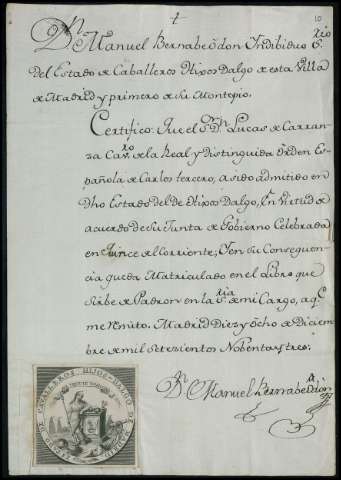 10
Dn. Manuel Bernabe
del Estado de Caballeros Hixos Dalgo de esta Villa
de Madrid y primero de Su Montepio.
Certifico: Que el Sr. Dn. Lucas de Carran-
za Cavro. de la Real y Distinguida Orden Es-
pañola de Carlos tercero, a sido admitido en
Dho Estado de Hixos Dalgo, En virtud de
acuerdo de Su Junta de Gobierno Celebrada
en quince del corriente, Y en Su Consequen-
cia queda Matriculado en el Libro que
Sirbe de Padron en la Sria. de mi Cargo, a que
me remito. Madrid Diez y Ocho de Diciem-
bre de mil Setezientos Nobenta y tres.
Dn. Manuel Bernabe
CAVALLEROS HIJOS-DALGO DE